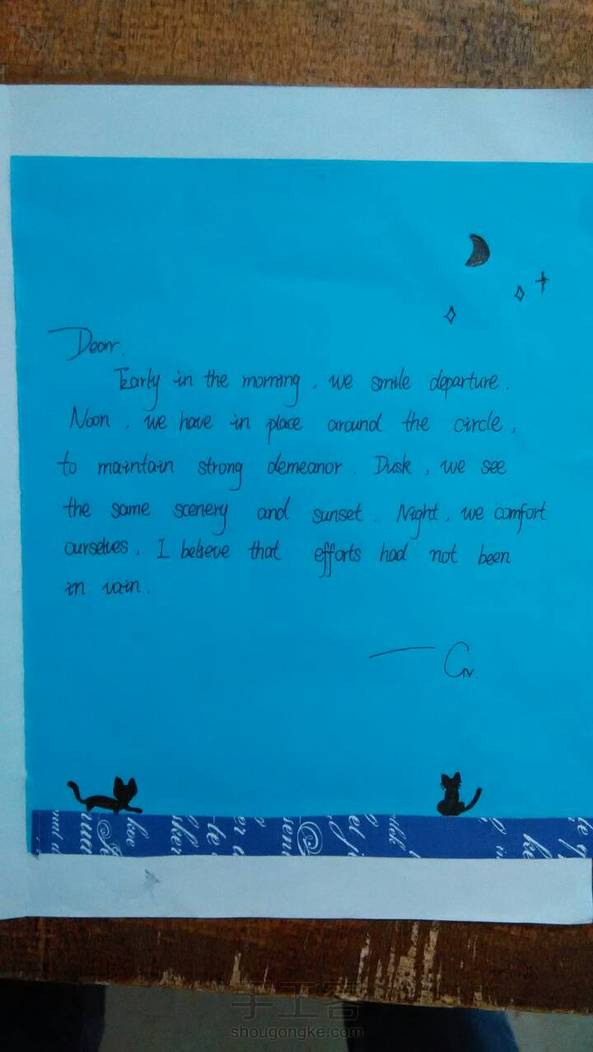 Dear.
Early in the morning, we smile departure.
Noon, we have in place around the circle,
to maintain strong demeanor. Dusk, we see
the same scenery and sunset. Night, we comfort
ourselves. I believe that efforts had not been
in vain.
手工客
shougongke.com